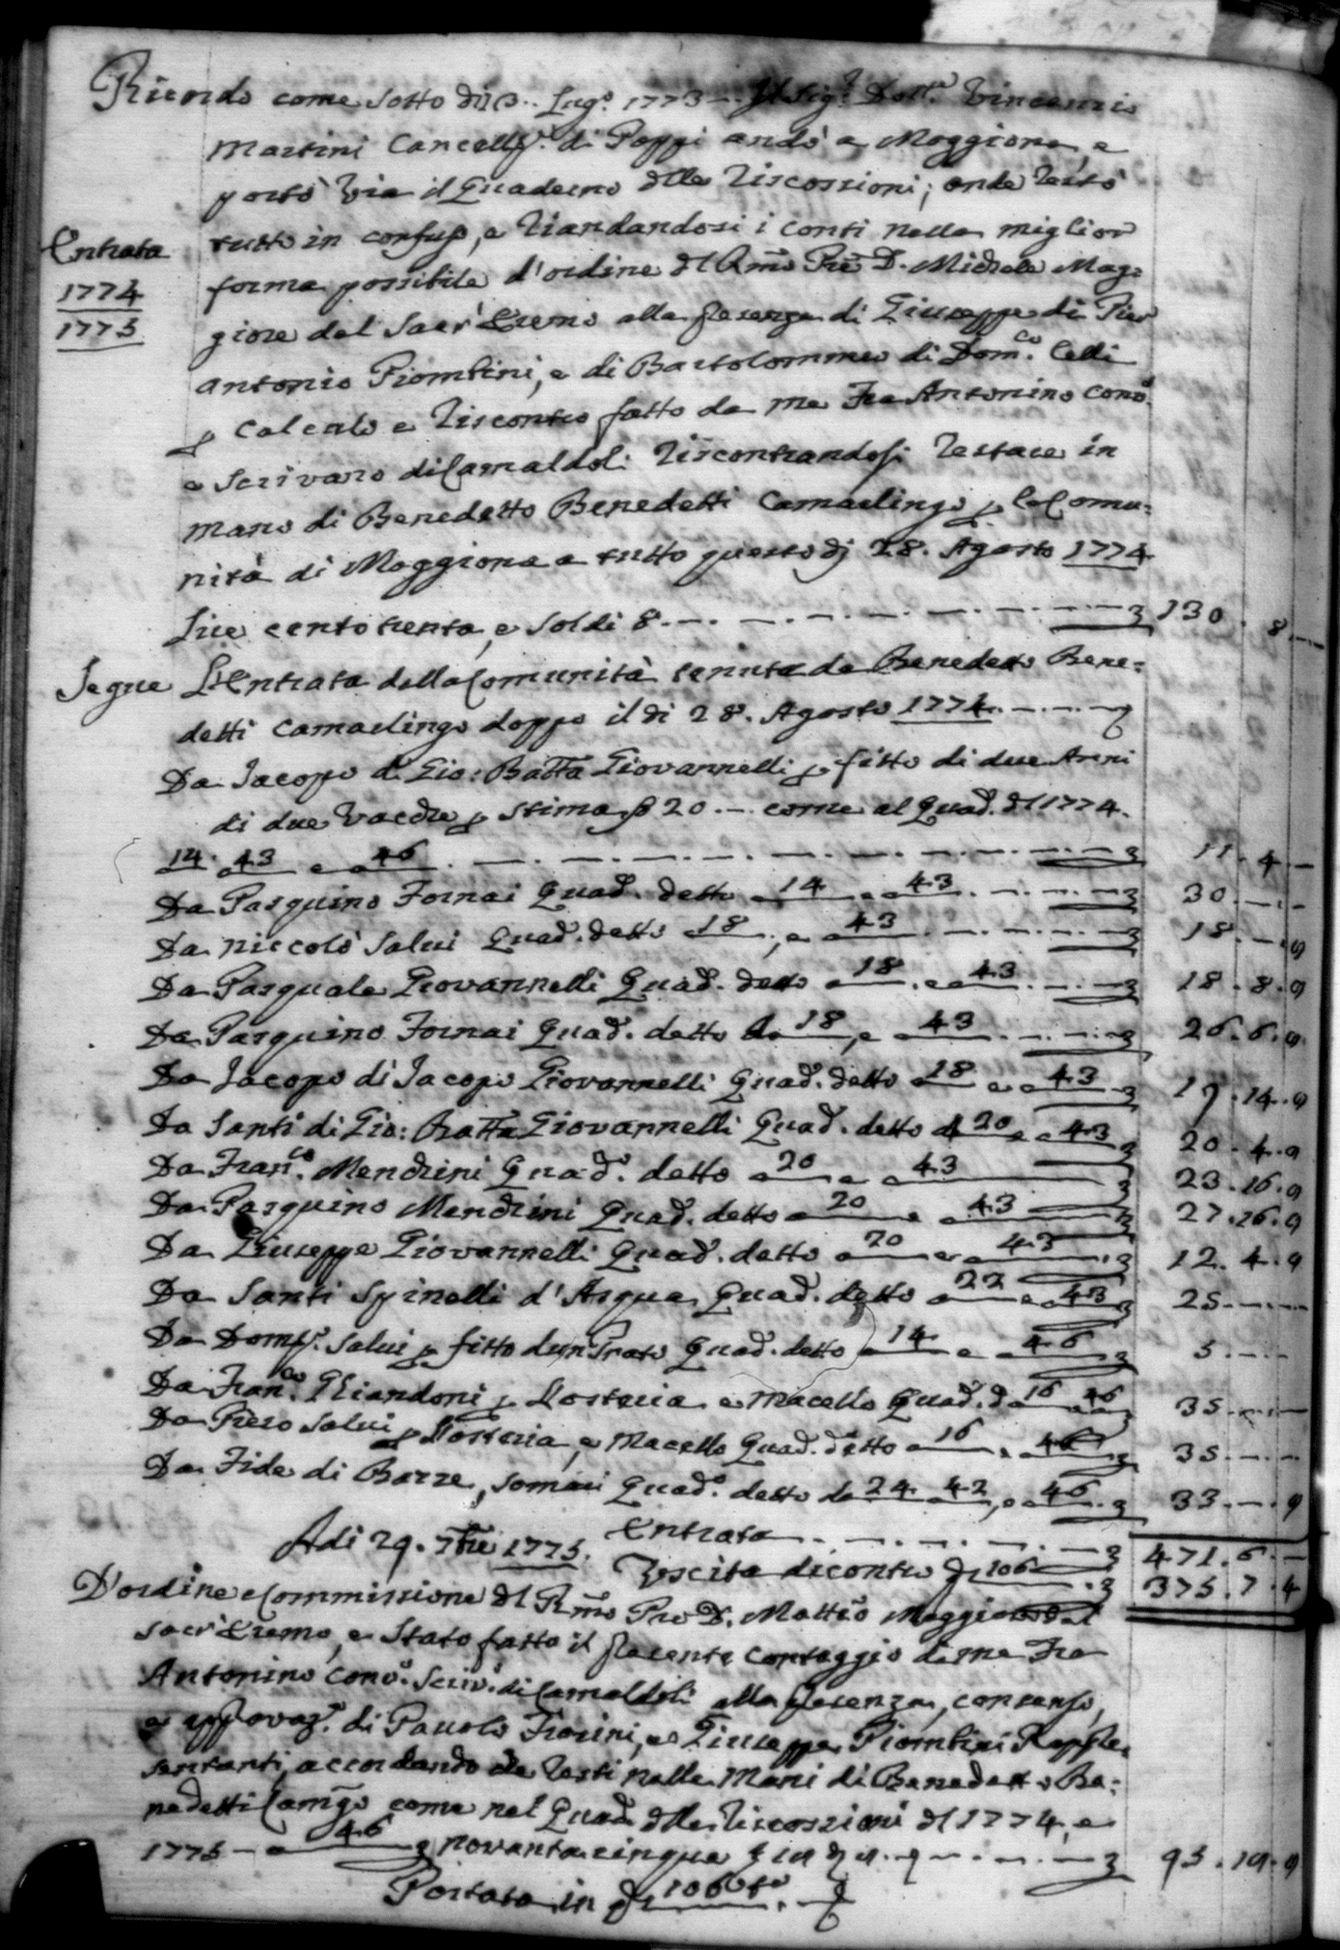 Ricordo come sotto dì 13.. Lug.º 1773 — Il Sig.r Dott.re Vincenzio
Martini Cancell.re di Poppi andò a Moggiona, e
portò via il Quaderno delle Riscossioni; onde restò
tutto in confuso, e riandandosi i Conti nella miglior
Entrata
1774
1775
forma possibile d'ordine del Rmo Pre D. Michele Mag=
giore del Sacr'Eremo alla presenza di Giuseppe di Pier
Antonio Piombini, e di Bartolommeo di Dom.co Celli
p Calcolo e Riscontro fatto da me Fra Antonino Convo
e Scrivano di Camaldoli riscontrandosi restare in
mano di Benedetto Benedetti Camarlingo p la Comu=
nità di Moggiona a tutto questo dì 28. Agosto 1774
Lire centotrenta, e soldi 8 130 . 8
Segue L'Entrata della Comunità tenuta da Benedetto Bene=
detti Camarlingo doppo il dì 28. Agosto 1774
Da Jacopo di Gio: Batta Giovannelli p fitto di due Anni
di due Vacche p stima 20 — come al Quad. del 1774.
14. 43 e 46 11 . 4 —
Da Pasquino Fornai Quad. detto a 14 e a 43 30 . — . —
Da Niccolò Salvi Quad. detto 18, e a 43 18 . — . 9
Da Pasquale Giovannelli Quad. detto a 18 . e a 43 18 . 8 . 9
Da Pasquino Fornai Quad. detto a 18, e a 43 26 . 6 . 9
Da Jacopo di Jacopo Giovannelli Quad. detto a 18 e a 43 19 . 14 . 9
Da Santi di Gio: Batta Giovannelli Quad. detto a 20 e a 43 20 . 4 . 9
Da Fran.co Mendrini Quad. detto a 20 e a 43 23 . 16 . 9
Da Pasquino Mendrini Quad. detto a 20 e a 43 27 . 16 . 9
Da Giuseppe Giovannelli Quad. detto a 20 e a 43 12 . 4 . 9
Da Santi Spinelli d'Asqua Quad. detto a 22 e a 43 25 . — . —
Da Dom.co Salvi p fitto d'un Prato Quad. detto a 14 e a 46 5 . — . —
Da Fran.co Ghiandoni p l'Osteria e Macello Quad. d. a 16 a 46 35 . — . —
Da Piero Salvi p l'Osteria, e Macello Quad. detto a 16 e 46 35 . — . —
Da Fide di Barze, Somari Quad.º detto da 24 a 42, e a 46 33 . — . 9
Entrata 471 . 6 . —
Adi 29. 7bre 1775. Uscita dicontro 106 375 . 7 . 4
D'ordine e Commissione del Rmo Pre D. Mattio Maggiore del
Sacr'Eremo, è stato fatto il presente Conteggio da me Fra
Antonino Convo. Scriv.º di Camaldoli alla presenza, consenso,
e approvaz.e di Pauolo Fiorini, e Giuseppe Piombini Rappre=
sentanti, accordando che resti nelle Mani di Benedetto Be=
nedetti Camgo come nel Quad. delle Riscossioni del 1774, e
1775 — a 46 novantacinque 19 9 95 . 19 . 9
Portata in 106 to